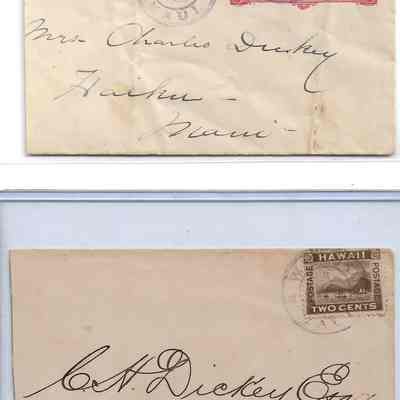 MAUI
Mrs. Charles Dickey
Haiku —
Maui —
HAWAII
POSTAGE
POSTAGE
TWO CENTS
C. H. Dickey Esq